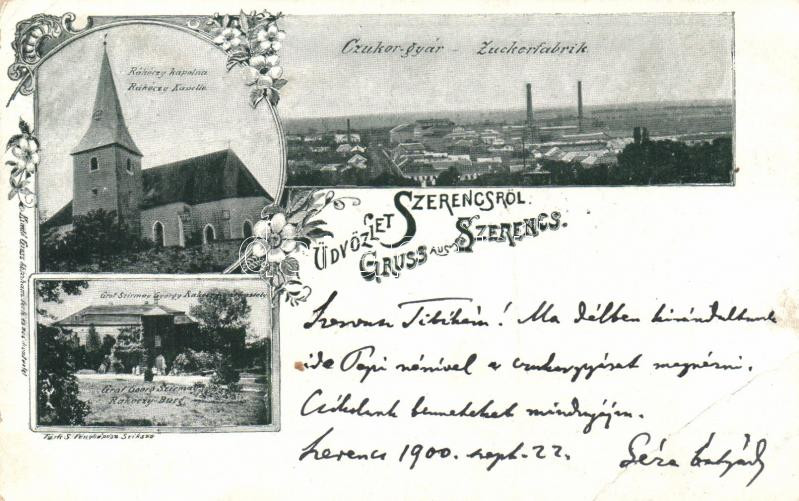 Rákóczy kapolna
Rákóczy Kapelle
Czukor-gyár - Zuckerfabrik
ÜDVÖZLET SZERENCSRŐL.
GRUSS AUS SZERENCS.
Gróf Szirmay György Rákóczy
Graf Georg Szirmay
Rákóczy-Burg
Szervusz Tibikém! Ma délben kirándultunk
ide Pepi nénivel a czukorgyárat megnézni.
Csókolunk benneteket mindnyájan.
Szerencs 1900. sept. 22. Géza